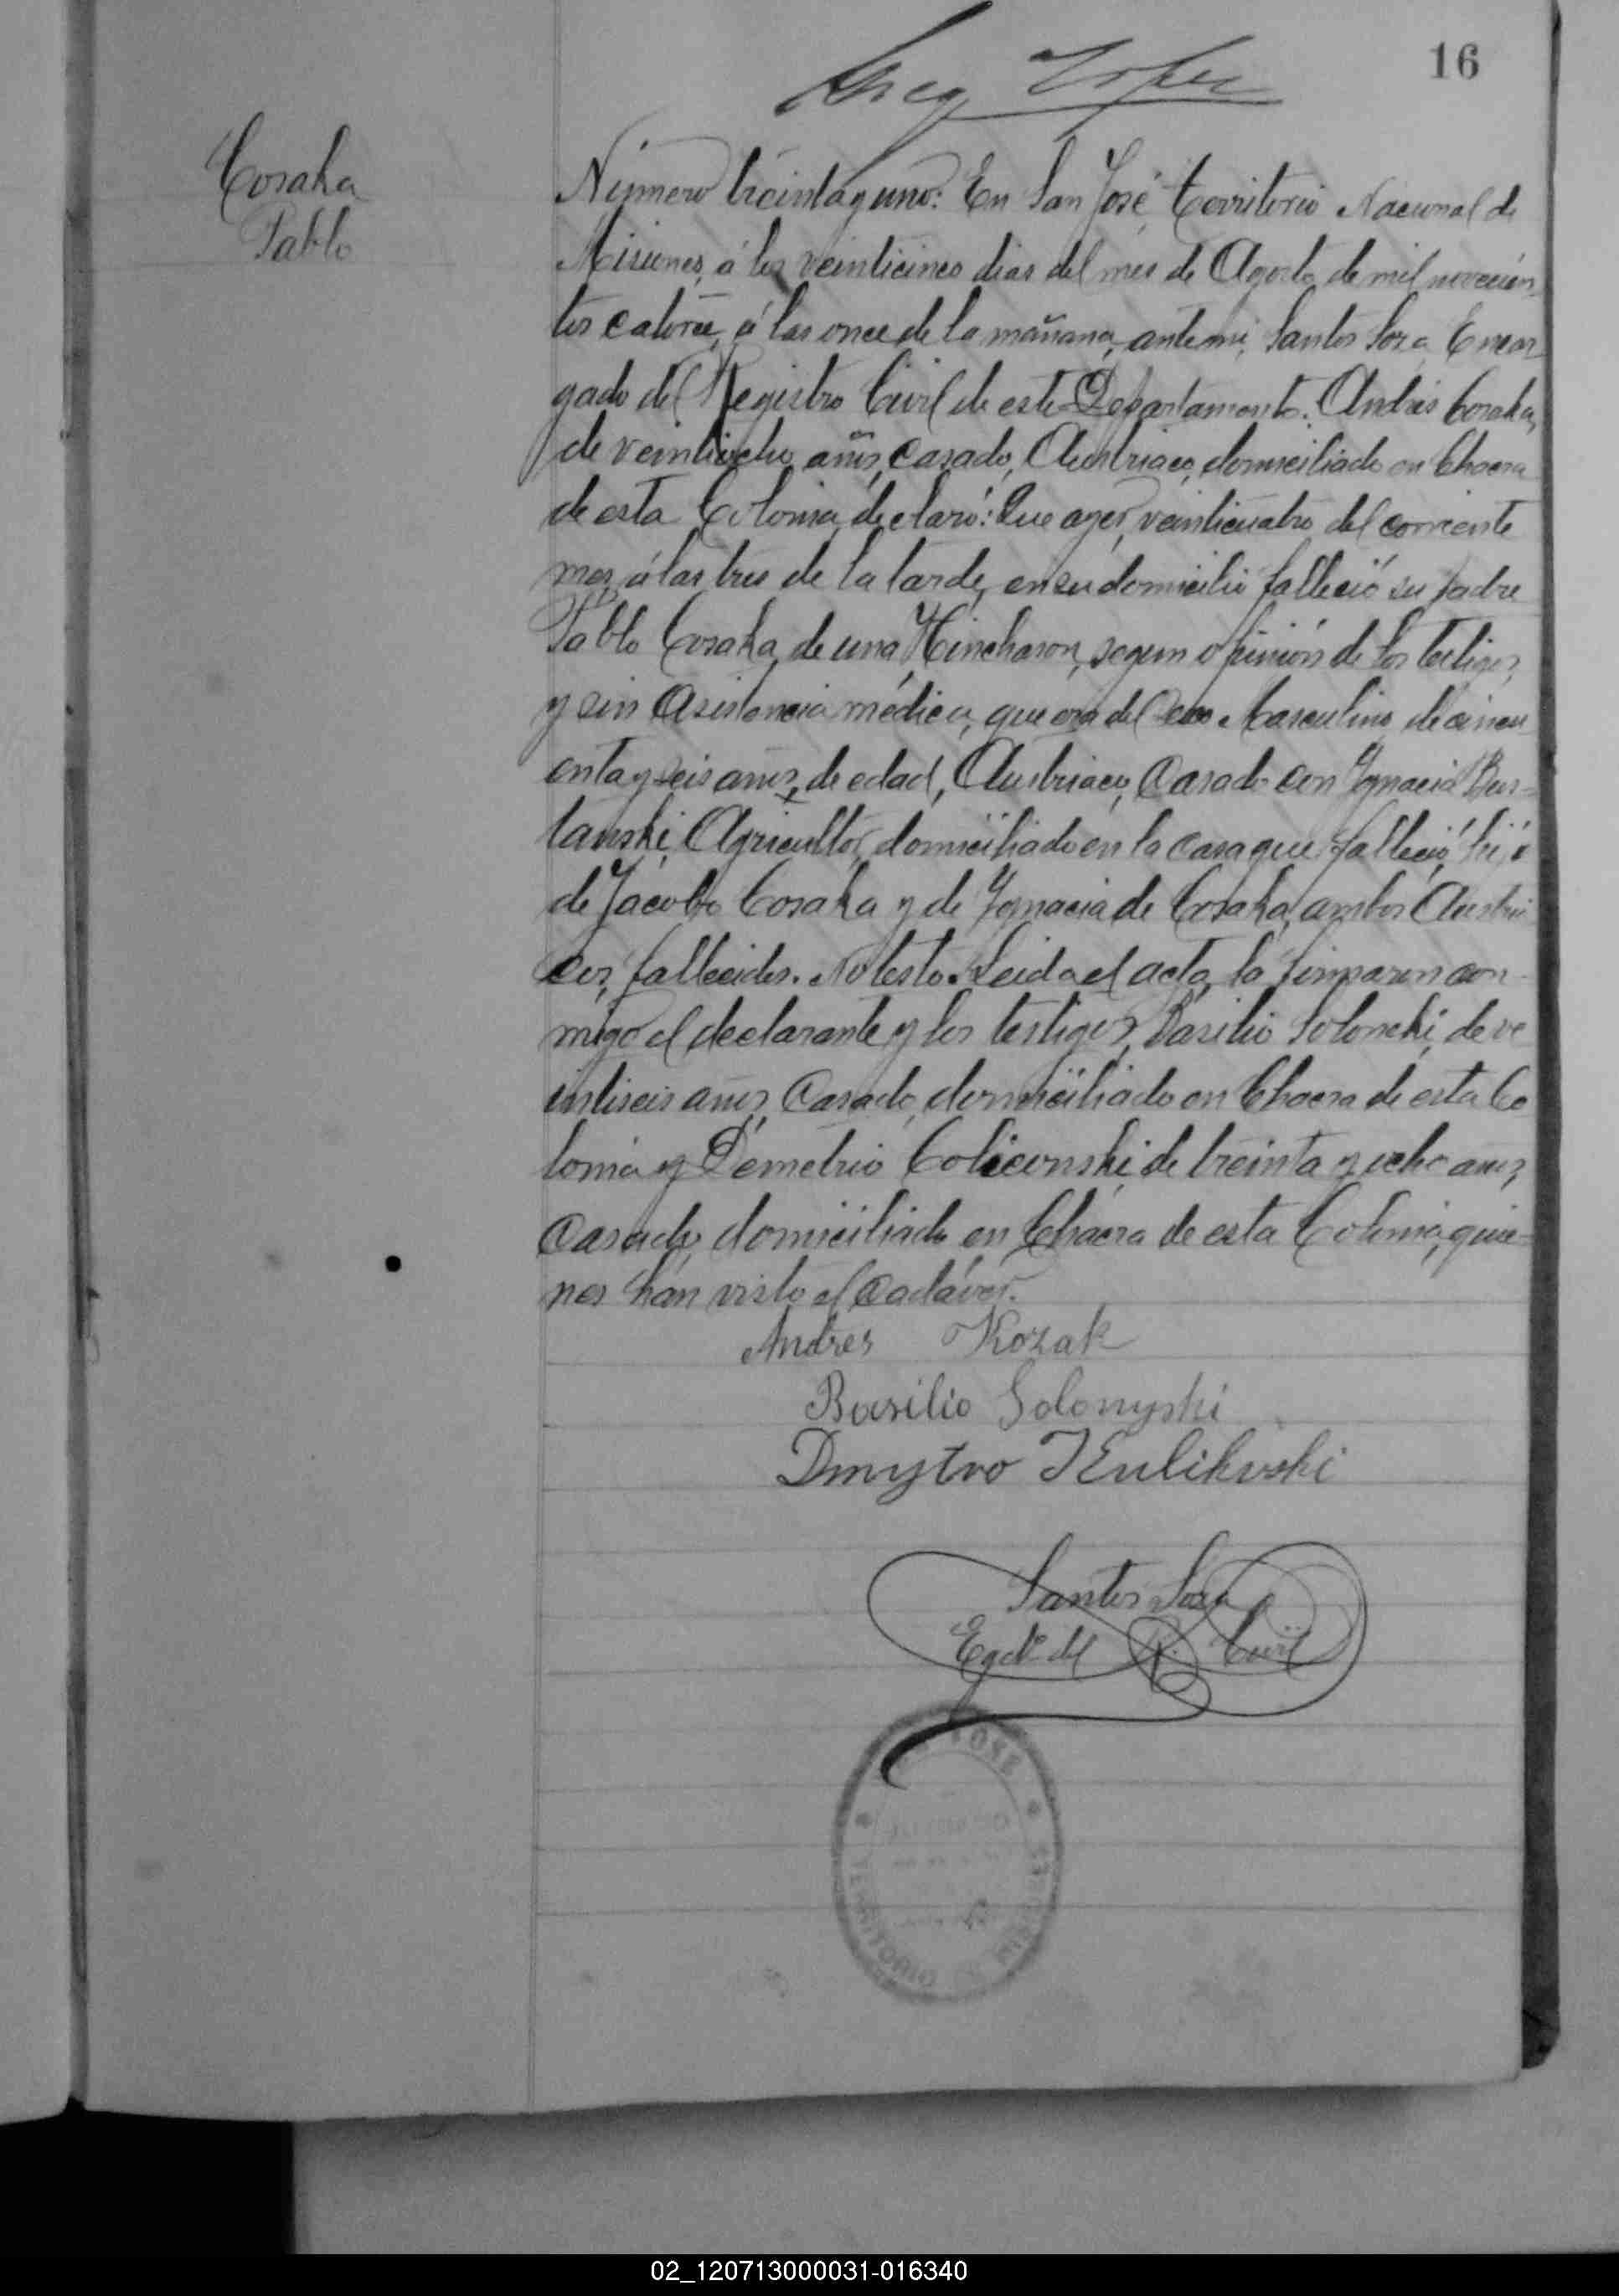 16
Cosaka
Pablo
Número treinta y uno: En San José, Territorio Nacional de
Misiones, á los veinticinco dias del mes de Agosto de mil novecien-
tos catorce, á las once de la mañana, ante mi, Santos Sosa Encar
gado del Registro Civil de este Departamento. Andrés Cosaka,
de veintiocho años, Casado, Austriaco, domiciliado en Chacra
de esta Colonia, declaró: Que ayer, veinticuatro del corriente
mes, á las tres de la tarde, en su domicilio falleció su padre
Pablo Cosaka, de una Hinchason, segun opinión de los testigos,
y sin asistencia médica, que era del Sexo Masculino, de cincu
enta y seis años, de edad, Austriaco, Casado con Ygnacia Bus-
lanski, Agricultor, domiciliado en la casa que falleció, hijo
de Jacobo Cosaka y de Ygnacia de Cosaka, ambos Austria
cos, fallecidos. No testo. Leida el acta, la firmaron con-
migo el declarante y los testigos, Basilio Solonski, de ve
intiseis años, Casado, domiciliado en Chacra de esta Co
lonia y Demetrio Colicovski, de treinta y ocho años,
Casado, domiciliado en Chacra de esta Colonia, quie-
nes han visto el Cadáver.
Andres Kozak
Basilio Solonyski
Dmytro Kulikvski
Santos Sosa
Egdo del R. Civil
JOSÉ
TERRITORIO
02_120713000031-016340